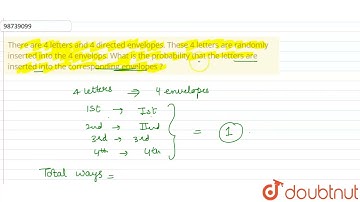 98739099
There are 4 letters and 4 directed envelopes. These 4 letters are randomly
inserted into the 4 envelops. What is the probability that the letters are
inserted into the corresponding envelopes ?
4 letters ⇒ 4 envelopes
1st → Ist
2nd → IInd
3rd → 3rd
4th → 4th
= 1
Total ways =
doubtnut